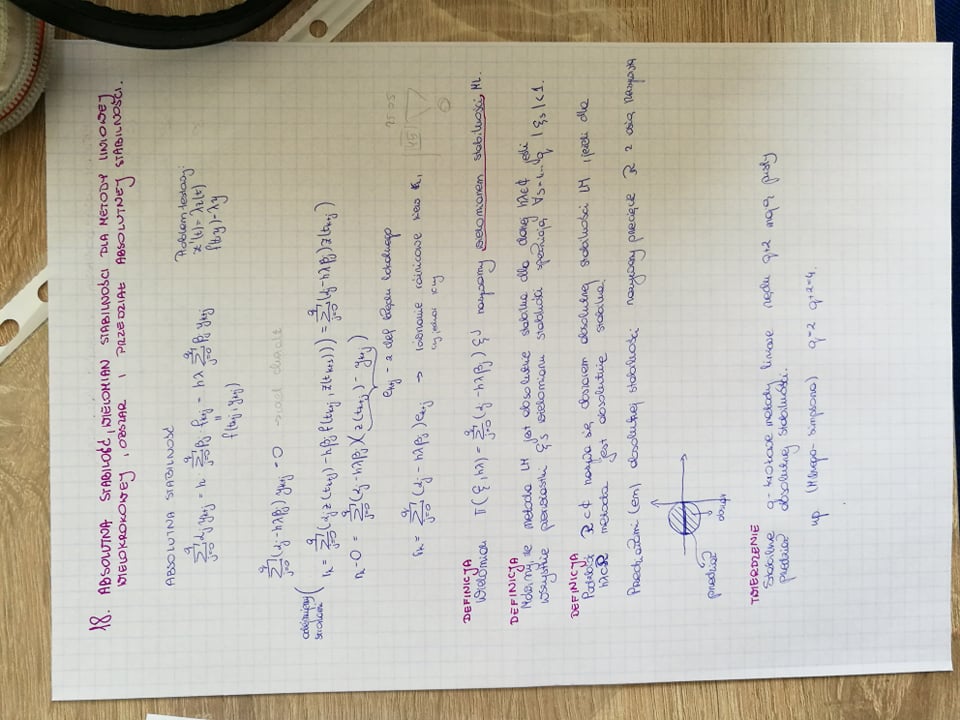 18. ABSOLUTNA STABILOŚĆ, WIELOMIAN STABILNOŚCI DLA METODY LINIOWEJ
WIELOKROKOWEJ, OBSZAR I PRZEDZIAŁ ABSOLUTNEJ STABILNOŚCI.
ABSOLUTNA STABILNOŚĆ
Σ_{j=0}^{q} α_j y_{k+j} = h Σ_{j=0}^{q} β_j f_{k+j} = hλ Σ_{j=0}^{q} β_j y_{k+j}
f(t_{k+j}, y_{k+j})
Problem testowy:
z'(t) = λz(t)
f(t,y) = λy
Σ_{j=0}^{q} (α_j - hλβ_j) y_{k+j} = 0
odejmujemy
stronami
r_k = Σ_{j=0}^{q} (α_j z(t_{k+j}) - hβ_j f(t_{k+j}, z(t_{k+j}))) = Σ_{j=0}^{q} (α_j - hλβ_j) z(t_{k+j})
r_k - 0 = Σ_{j=0}^{q} (α_j - hλβ_j)(z(t_{k+j}) - y_{k+j})
e_{k+j} - z def błędu lokalnego
r_k = Σ_{j=0}^{q} (α_j - hλβ_j) e_{k+j} → równanie różnicowe
25.05
DEFINICJA
Wielomian π(ξ, hλ) = Σ_{j=0}^{q} (α_j - hλβ_j) ξ^j nazywamy wielomianem stabilności ML.
DEFINICJA
Mówimy, że metoda LM jest absolutnie stabilna dla danej hλ∈ℂ jeśli
wszystkie pierwiastki ξ_s wielomianu stabilności spełniają ∀s=1...q |ξ_s| < 1.
DEFINICJA
Podzbiór R⊂ℂ nazywa się obszarem absolutnej stabilności LM, jeżeli dla
hλ∈R metoda jest absolutnie stabilna.
Przedziałami (em) absolutnej stabilności nazywamy przecięcie R z osią rzeczywistą
przedział
obszar
TWIERDZENIE
Stabilne q-krokowe metody liniowe rzędu q+2 mają pusty
przedział absolutnej stabilności.
np. (Milnego-Simpsona) q=2 q+2=4.